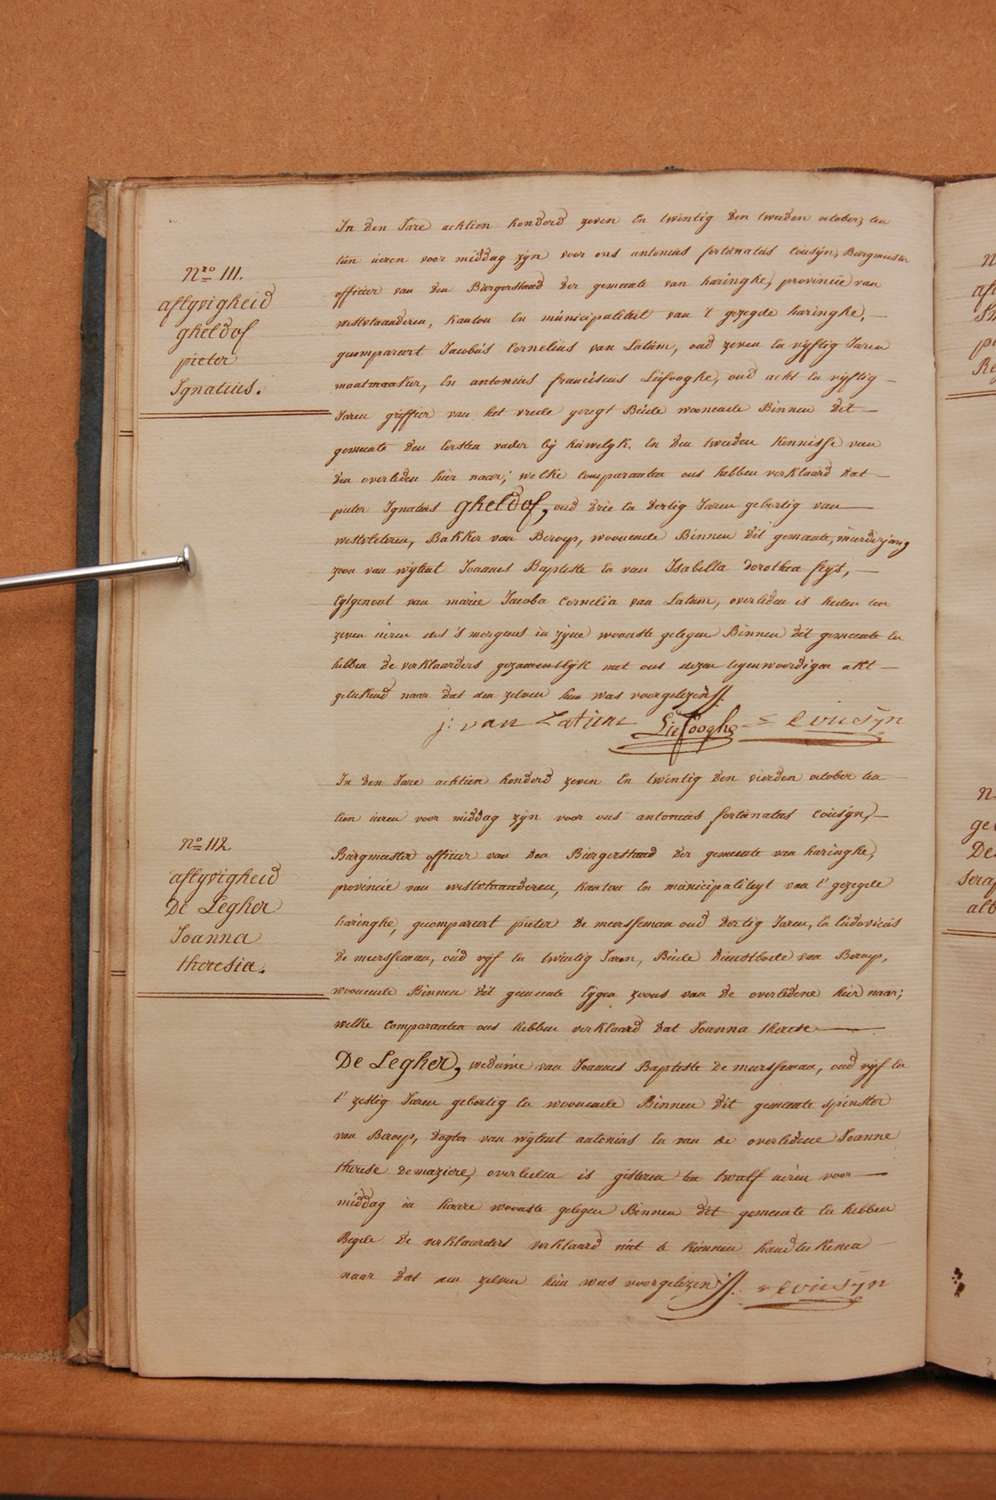 Nro 111.
aflyvigheid
gheldof
pieter
Ignatius.
In den Jare achtien honderd zeven en twintig den tweeden october, ten
tien uren voor middag zyn voor ons antonius fortunatus Cousyn, Burgmeester
officier van den Burgerstaad der gemeente van haringhe, provincie van
westvlaanderen, kanton en municipaliteit van 't gezegde haringhe,
gecompareert Jacobus Cornelius van Latum, oud zeven en vyftig Jaren
moutmaaker, en antonius franciscus Liefooghe, oud acht en vyftig
Jaren griffier van het vrede geregt Beide woonende Binnen dit
gemeente den eersten vader by huwelyk en den tweeden kennisse van
den overleden hier naar; welke comparanten ons hebben verklaard dat
pieter Ignatius gheldof, oud drie en dertig Jaren gebortig van
westvleteren, Bakker van Beroep, woonende Binnen dit gemeente, meerderjarig
zoon van wylent Joannes Baptiste en van Isabella dorothea feys,
Egtgenoot van marie Jacoba Cornelia van Latum, overleden is heden ten
zeven uren des 's morgens in zyne woonste gelegen Binnen dit gemeente en
hebben de verklaarders gezamentlyk met ons dezen tegenwoordigen akt
geteekend naar dat den zelven hun was voorgelezen.
j: van Latum Liefooghe Cousyn
No 112
aflyvigheid
De Legher
Joanna
theresia.
In den Jare achtien honderd zeven en twintig den vierden october ten
tien uren voor middag zyn voor ons antonius fortunatus cousyn,
Burgmeester officier van den Burgerstaad der gemeente van haringhe,
provincie van westvlaanderen, kanton en municipaliteyt van 't gezegde
haringhe, gecompareert pieter de meersseman oud dertig Jaren, en Ludovicus
de meersseman, oud vyf en twintig Jaren, Beide dienstbode van Beroep,
woonende Binnen dit gemeente Eygen zoons van de overledene hier naar;
welke comparanten ons hebben verklaard dat Joanna therese
De Legher, weduwe van Joannes Baptiste de meersseman, oud vyf en
t' zestig Jaren gebortig en woonende Binnen dit gemeente spinster
van Beroep, dogter van wylent antonius en van de overledene Joanne
therese demaziere, overleden is gisteren ten twalf uren voor
middag in haare woonste gelegen Binnen dit gemeente en hebben
Beyde de verklaarders verklaard niet te konnen handteekenen
naar dat den zelven hun was voorgelezen. Cousyn